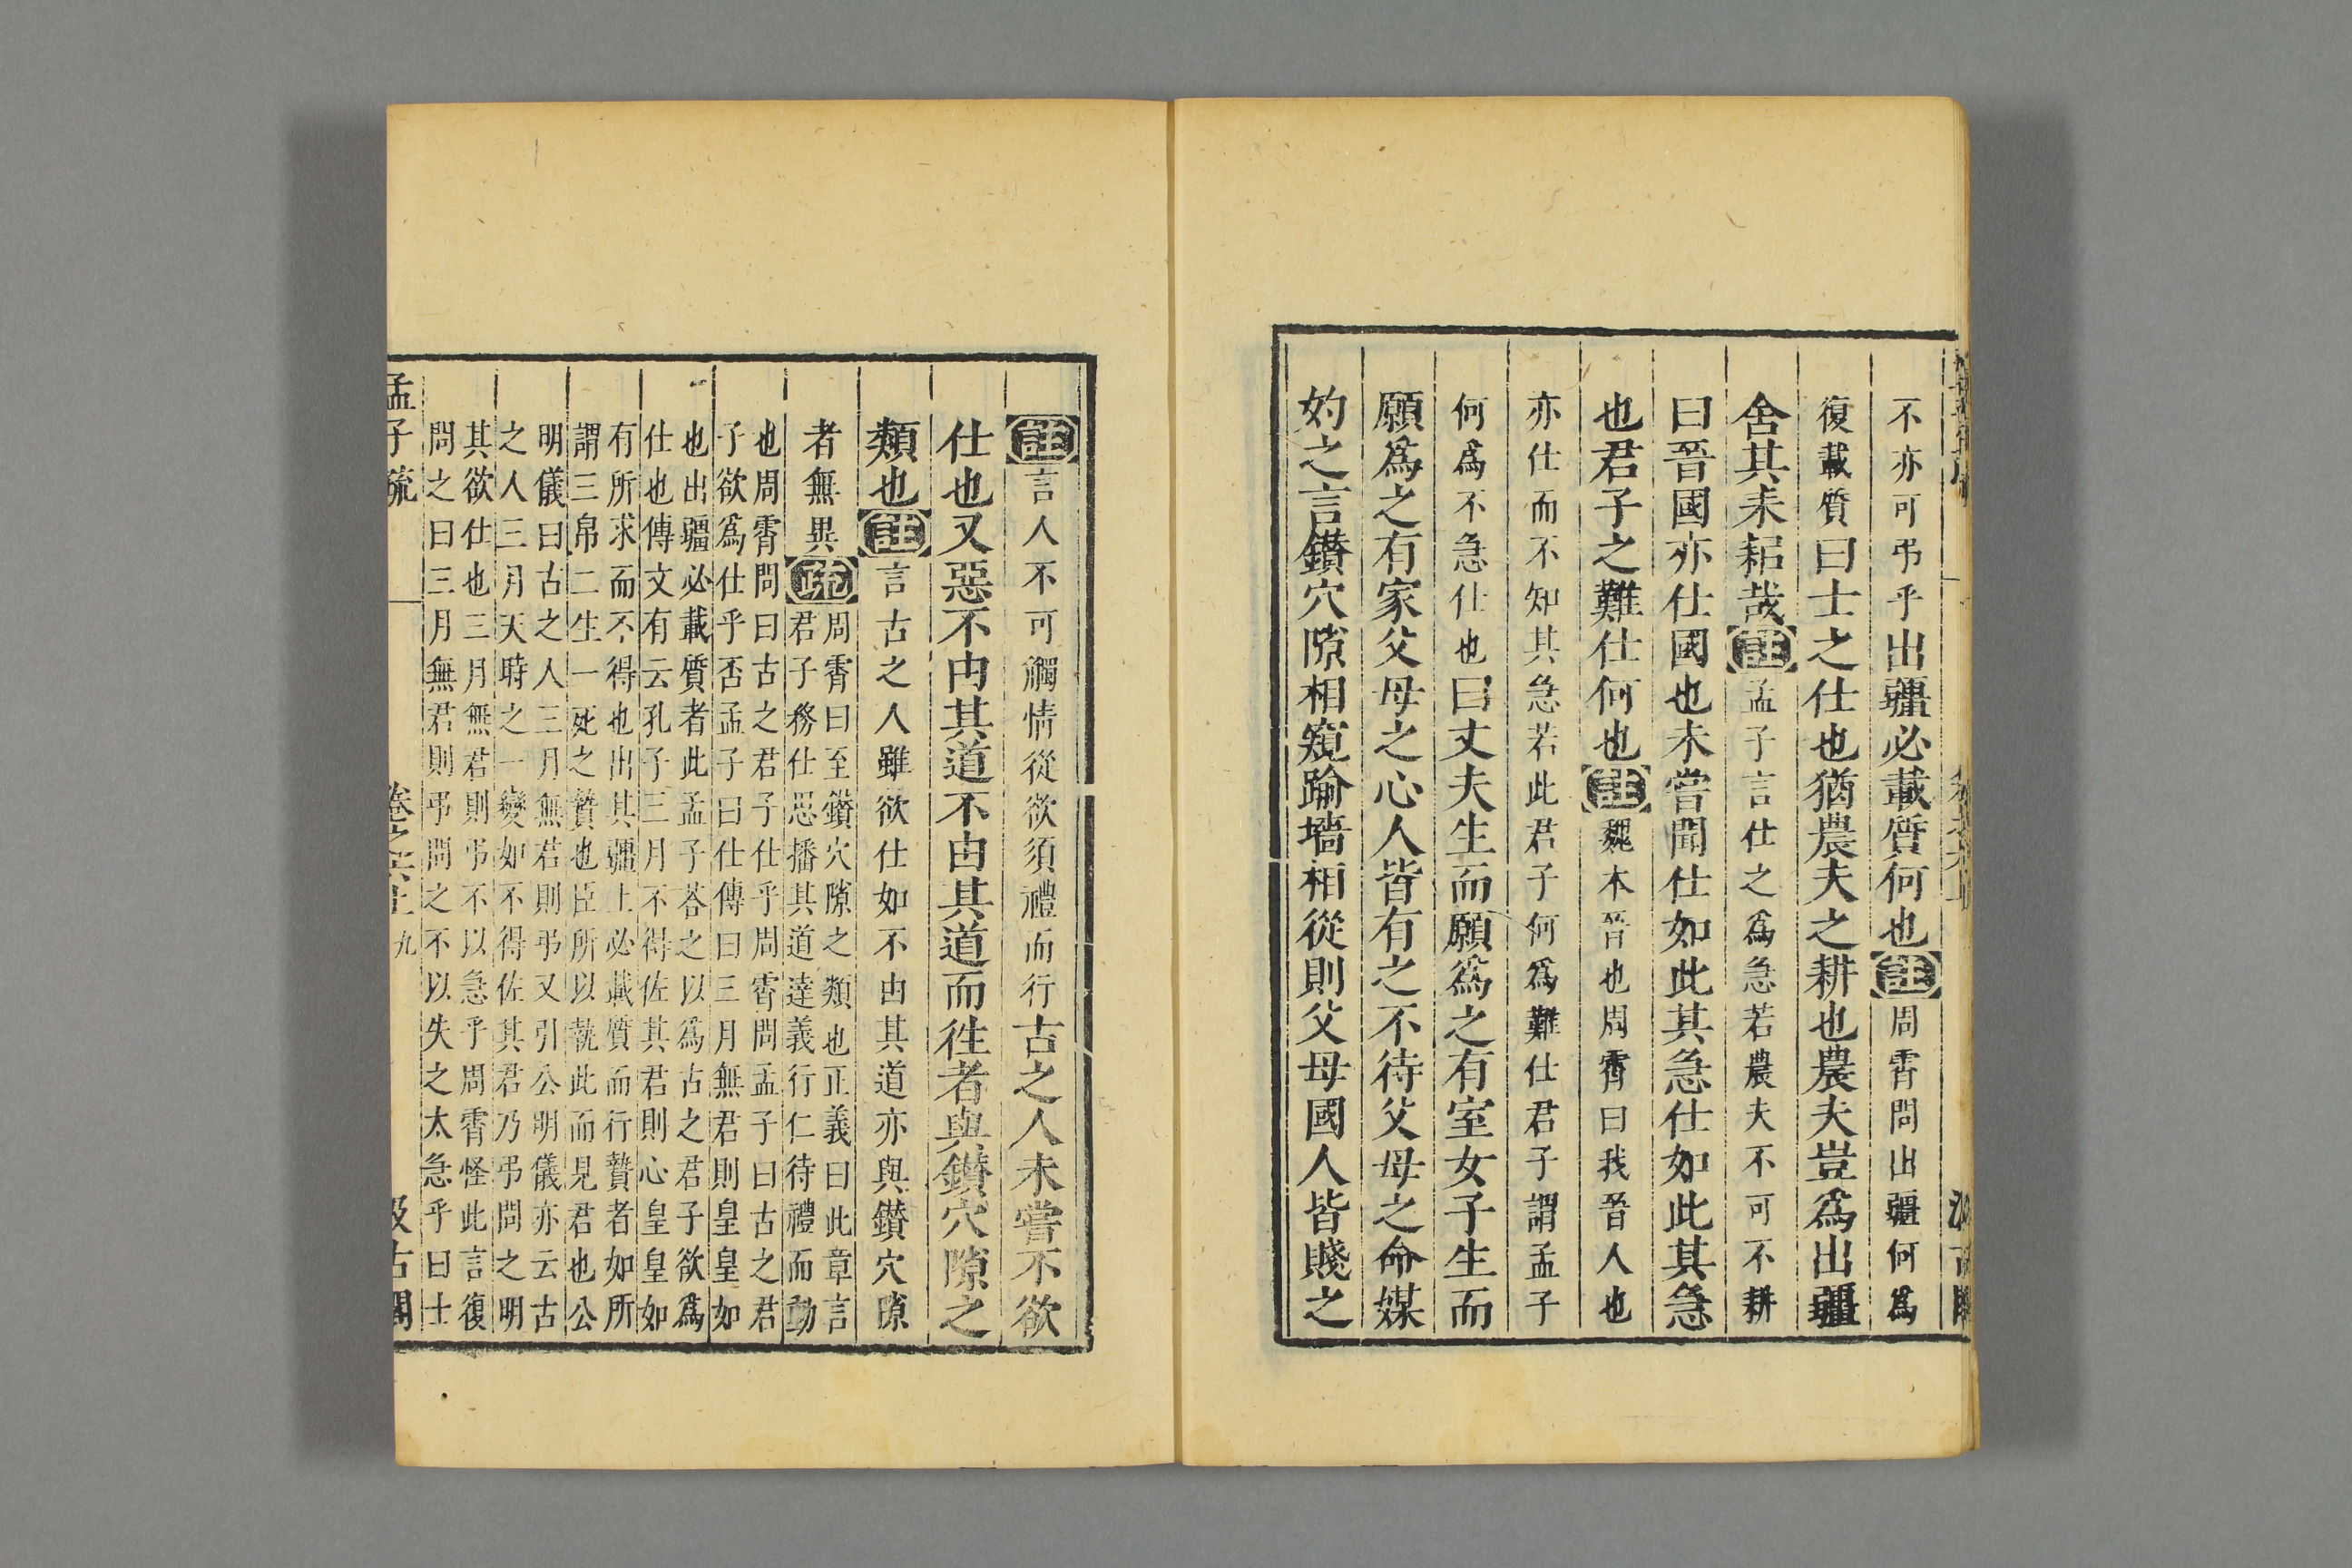 不亦可弔乎出疆必載質何也註周霄問出疆何爲
復載質曰士之仕也猶農夫之耕也農夫豈爲出疆
舍其耒耜哉註孟子言仕之爲急若農夫不可不耕
曰晉國亦仕國也未嘗聞仕如此其急仕如此其急
也君子之難仕何也註魏本晉也周霄曰我晉人也
亦仕而不知其急若此君子何爲難仕君子謂孟子
何爲不急仕也曰丈夫生而願爲之有室女子生而
願爲之有家父母之心人皆有之不待父母之命媒
妁之言鑚穴隙相窺踰墻相從則父母國人皆賤之
註言人不可觸情從欲須禮而行古之人未嘗不欲
仕也又惡不由其道不由其道而徃者與鑚穴隙之
類也註言古之人雖欲仕如不由其道亦與鑚穴隙
者無異疏周霄曰至鑚穴隙之類也正義曰此章言
君子務仕思播其道達義行仁待禮而動
也周霄問曰古之君子仕乎周霄問孟子曰古之君
子欲爲仕乎否孟子曰仕傳曰三月無君則皇皇如
也出疆必載質者此孟子荅之以爲古之君子欲爲
仕也傳文有云孔子三月不得佐其君則心皇皇如
有所求而不得也出其疆土必載質而行贄者如所
謂三帛二生一死之贄也臣所以執此而見君也公
明儀曰古之人三月無君則弔又引公明儀亦云古
之人三月天時之一變如不得佐其君乃弔問之明
其欲仕也三月無君則弔不以急乎周霄怪此言復
問之曰三月無君則弔問之不以失之太急乎曰士
孟子疏 卷之六上 九 汲古閣